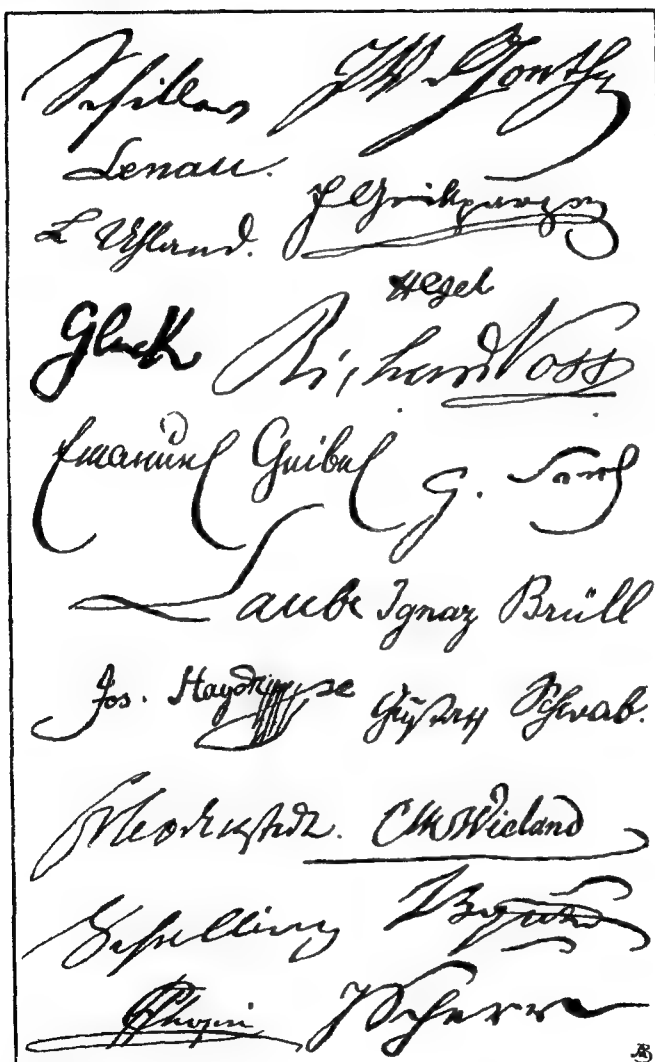 Schiller JWvGoethe
Lenau.
L Uhland. F Grillparzer
Hegel
Gluck Richard Voss
Emanuel Geibel G.
Laube Ignaz Brüll
Jos. Haydn Gustav Schwab.
Fr Bodenstedt. CMWieland
Schelling
FChopin JScherr